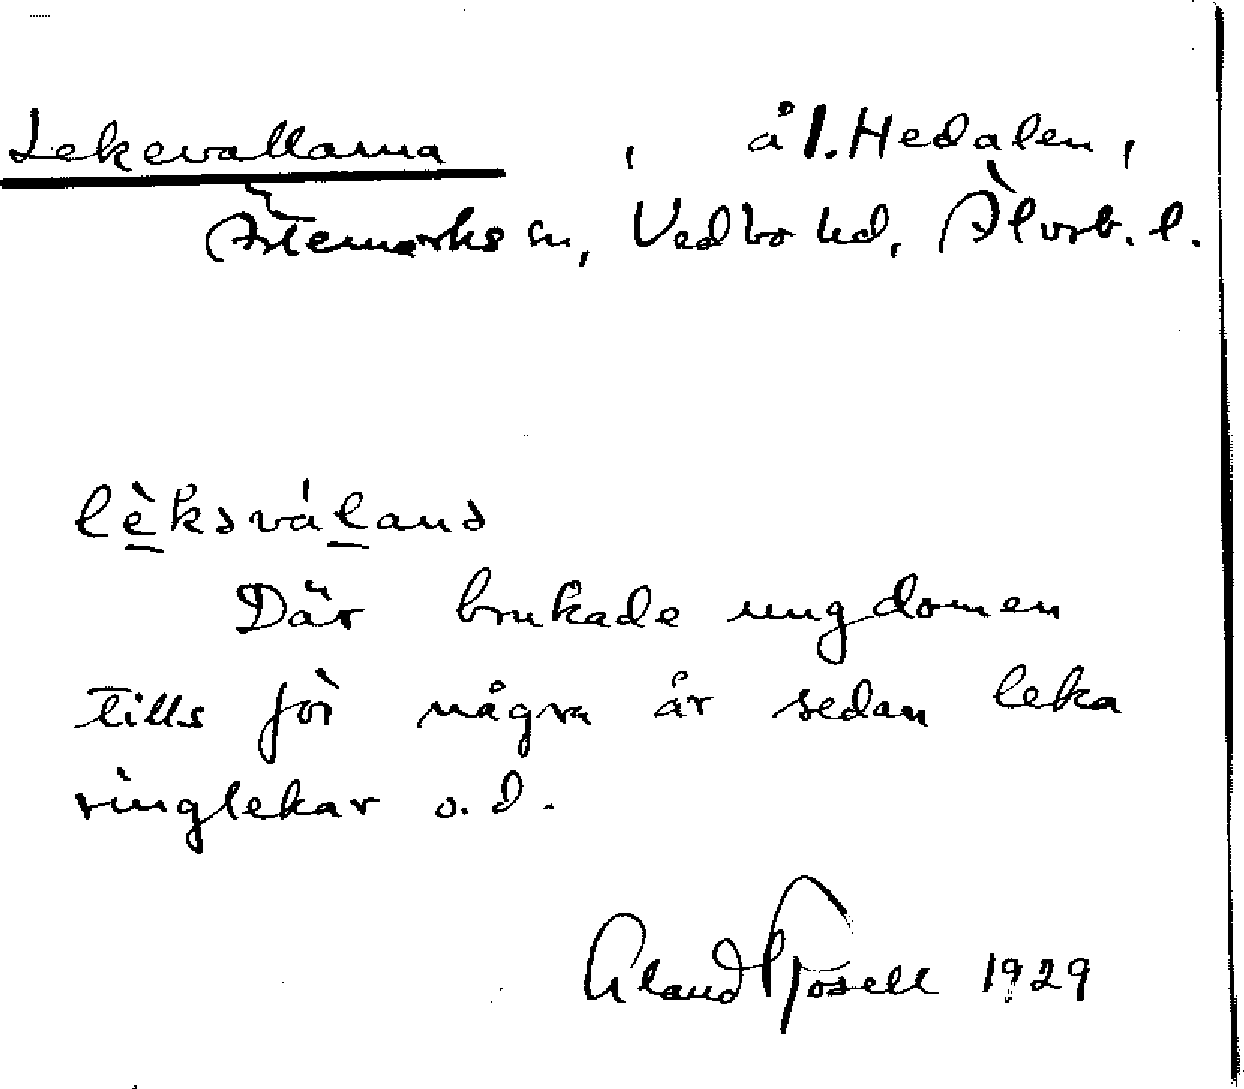 Lekevallarna, å l. Hedalen,
Ärtemarks sn, Vedbo hd, Älvsb. l.
lèksválans
Där brukade ungdomen
tills för några år sedan leka
ringlekar o.d.
1929